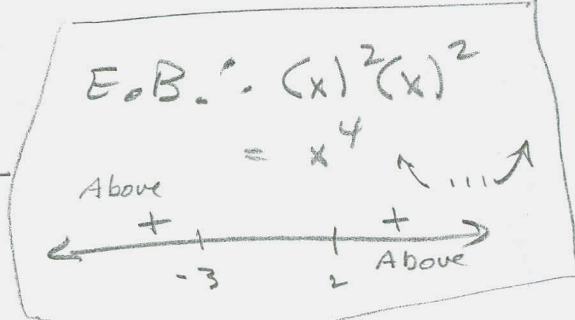 E.B.: (x)²(x)²
= x⁴
Above
+ +
-3 2
Above